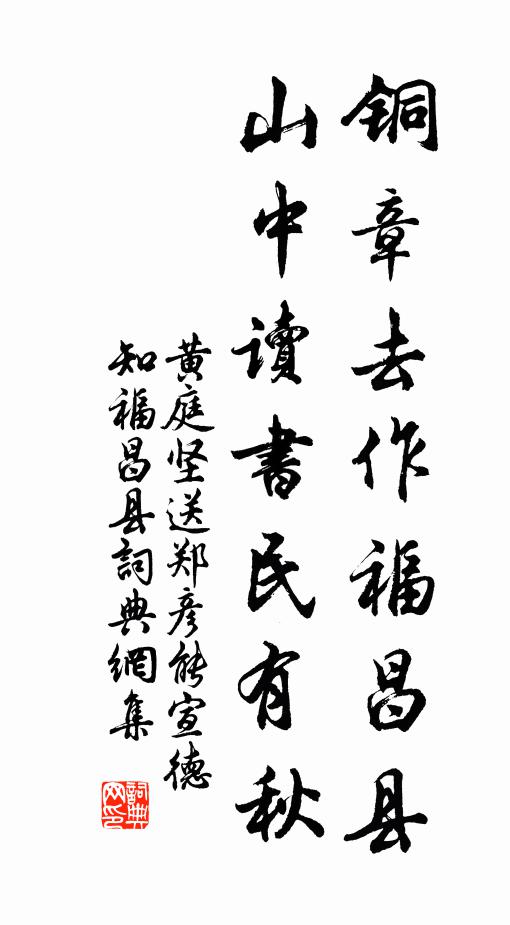 铜章去作福昌县
山中读書民有秋
黄庭坚送郑彦能宣德
知福昌县詞典網集
詞典
网印